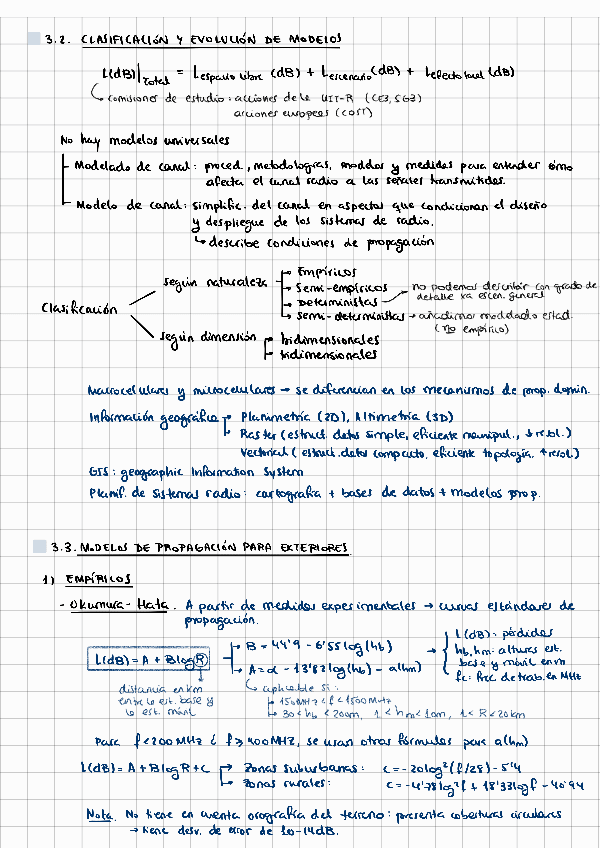 3.2. CLASIFICACIÓN Y EVOLUCIÓN DE MODELOS
L(dB)|Total = Lespacio libre (dB) + Lescenario (dB) + Lefecto local (dB)
↳ comisiones de estudio: acciones de la UIT-R (CE3, SG3)
acciones europeas (COST)
No hay modelos universales
Modelado de canal: proced., metodologías, modelos y medidas para entender cómo
afecta el canal radio a las señales transmitidas.
Modelo de canal: simplific. del canal en aspectos que condicionan el diseño
y despliegue de los sistemas de radio.
↳ describe condiciones de propagación
Clasificación
según naturaleza
Empíricos
Semi-empíricos
Deterministas → no podemos describir con grado de
detalle xa escen. general
Semi-deterministas → añadimos modelado estad.
(no empírico)
según dimensión
bidimensionales
tridimensionales
Macrocelulares y microcelulares → se diferencian en los mecanismos de prop. domin.
Información geográfica → Planimetría (2D), Altimetría (3D)
Raster (estruct. datos simple, eficiente manipul., ↓ resol.)
Vectorial (estruct. datos compacto, eficiente topología, ↑ resol.)
GIS: geographic Information System
Planif. de sistemas radio: cartografía + bases de datos + modelos prop.
3.3. MODELOS DE PROPAGACIÓN PARA EXTERIORES
1) EMPÍRICOS
- Okumura-Hata. A partir de medidas experimentales → curvas estándares de
propagación.
L(dB) = A + B log R
B = 44'9 - 6'55 log(hb)
A = α - 13'82 log(hb) - a(hm)
L(dB): pérdidas
hb, hm: alturas est.
base y móvil en m
fc: frec. de trab. en MHz
distancia en km
entre la est. base y
la est. móvil
↳ aplicable si:
150MHz < f < 1500MHz
30 < hb < 200m, 1 < hm < 10m, 1 < R < 20km
Para f < 200MHz ó f ≥ 400MHz, se usan otras fórmulas para a(hm)
L(dB) = A + B log R + C
Zonas suburbanas: C = -2 log²(f/28) - 5'4
Zonas rurales: C = -4'78 log²f + 18'33 log f - 40'94
Nota. No tiene en cuenta orografía del terreno: presenta coberturas circulares
→ tiene desv. de error de 10-14dB.